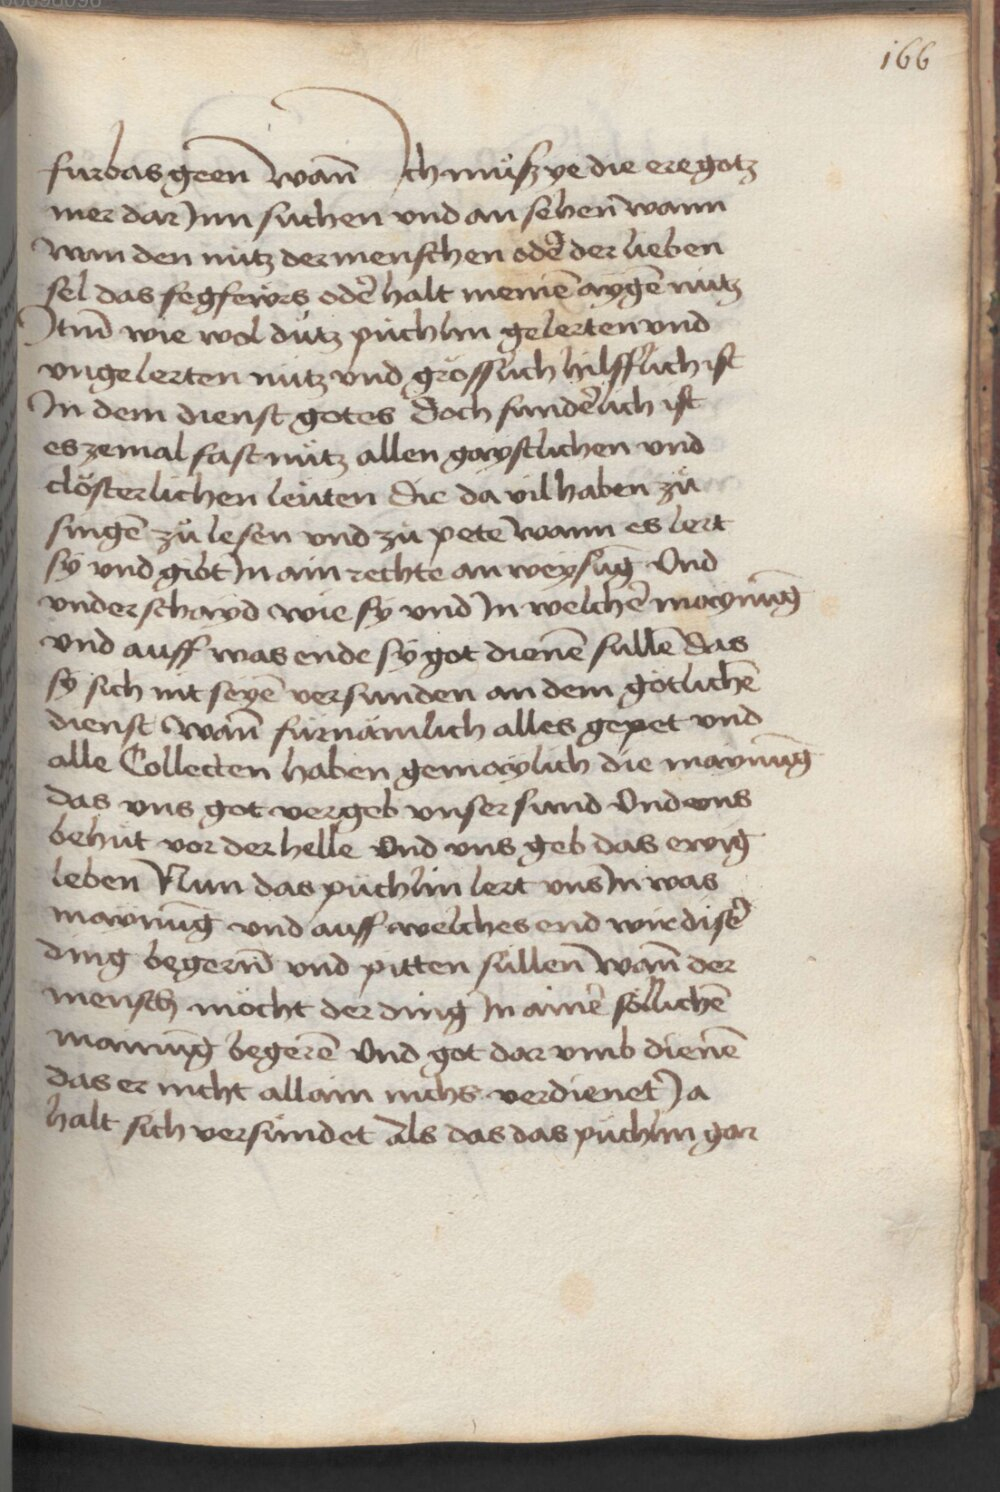 166
furbas geen̄ wan̄ Ich muͤsz ye die ere gotz
mer dar Inn suchen vnd an sehen wann
wan den nutz der menschen oder̄ der lieben
sel das fegfewrs oder̄ halt meinē aygē nutz
Itm̄ wie wol ditz puͤchlin gelerten vnd
vngelerten nutz vnd groͤsslich hilfflich ist
In dem dienst gotes doch sunder̄lich ist
es zemal fast nuͤtz allen gaystlichen vnd
cloͤsterlichen leuͤten die da vil haben zuͦ
singē zuͦ lesen vnd zuͦ petē wann es lert
sÿ vnd gibt In ain rechte an weysūg Vnd
vnder schayd wie sÿ vnd In welcher̄ maynūg
vnd auff was ende sÿ got dienē sullē das
sÿ sich nit seyē versunden an dem goͤtlichē
dienst Wan̄ fuͤrnaͤmlich alles gepet vnd
alle Collecten haben gemaylich die maynūg
das vns got vergeb vnser sund Vnd vns
behuͤt vor der helle Vnd vns geb das ewig
leben Nun das puͤchlin lert vns In was
maynūg vnd auff welches end wir diser̄
ding begern̄ vnd pitten suͤllen̄ wan̄ der
mensch moͤcht der ding In ainer̄ soͤllichē
mainūg begerē Vnd got dar vmb dienē
das er nicht allain nichs verdienet Ja
halt sich versuͤndet Als das das puͤchlin gar